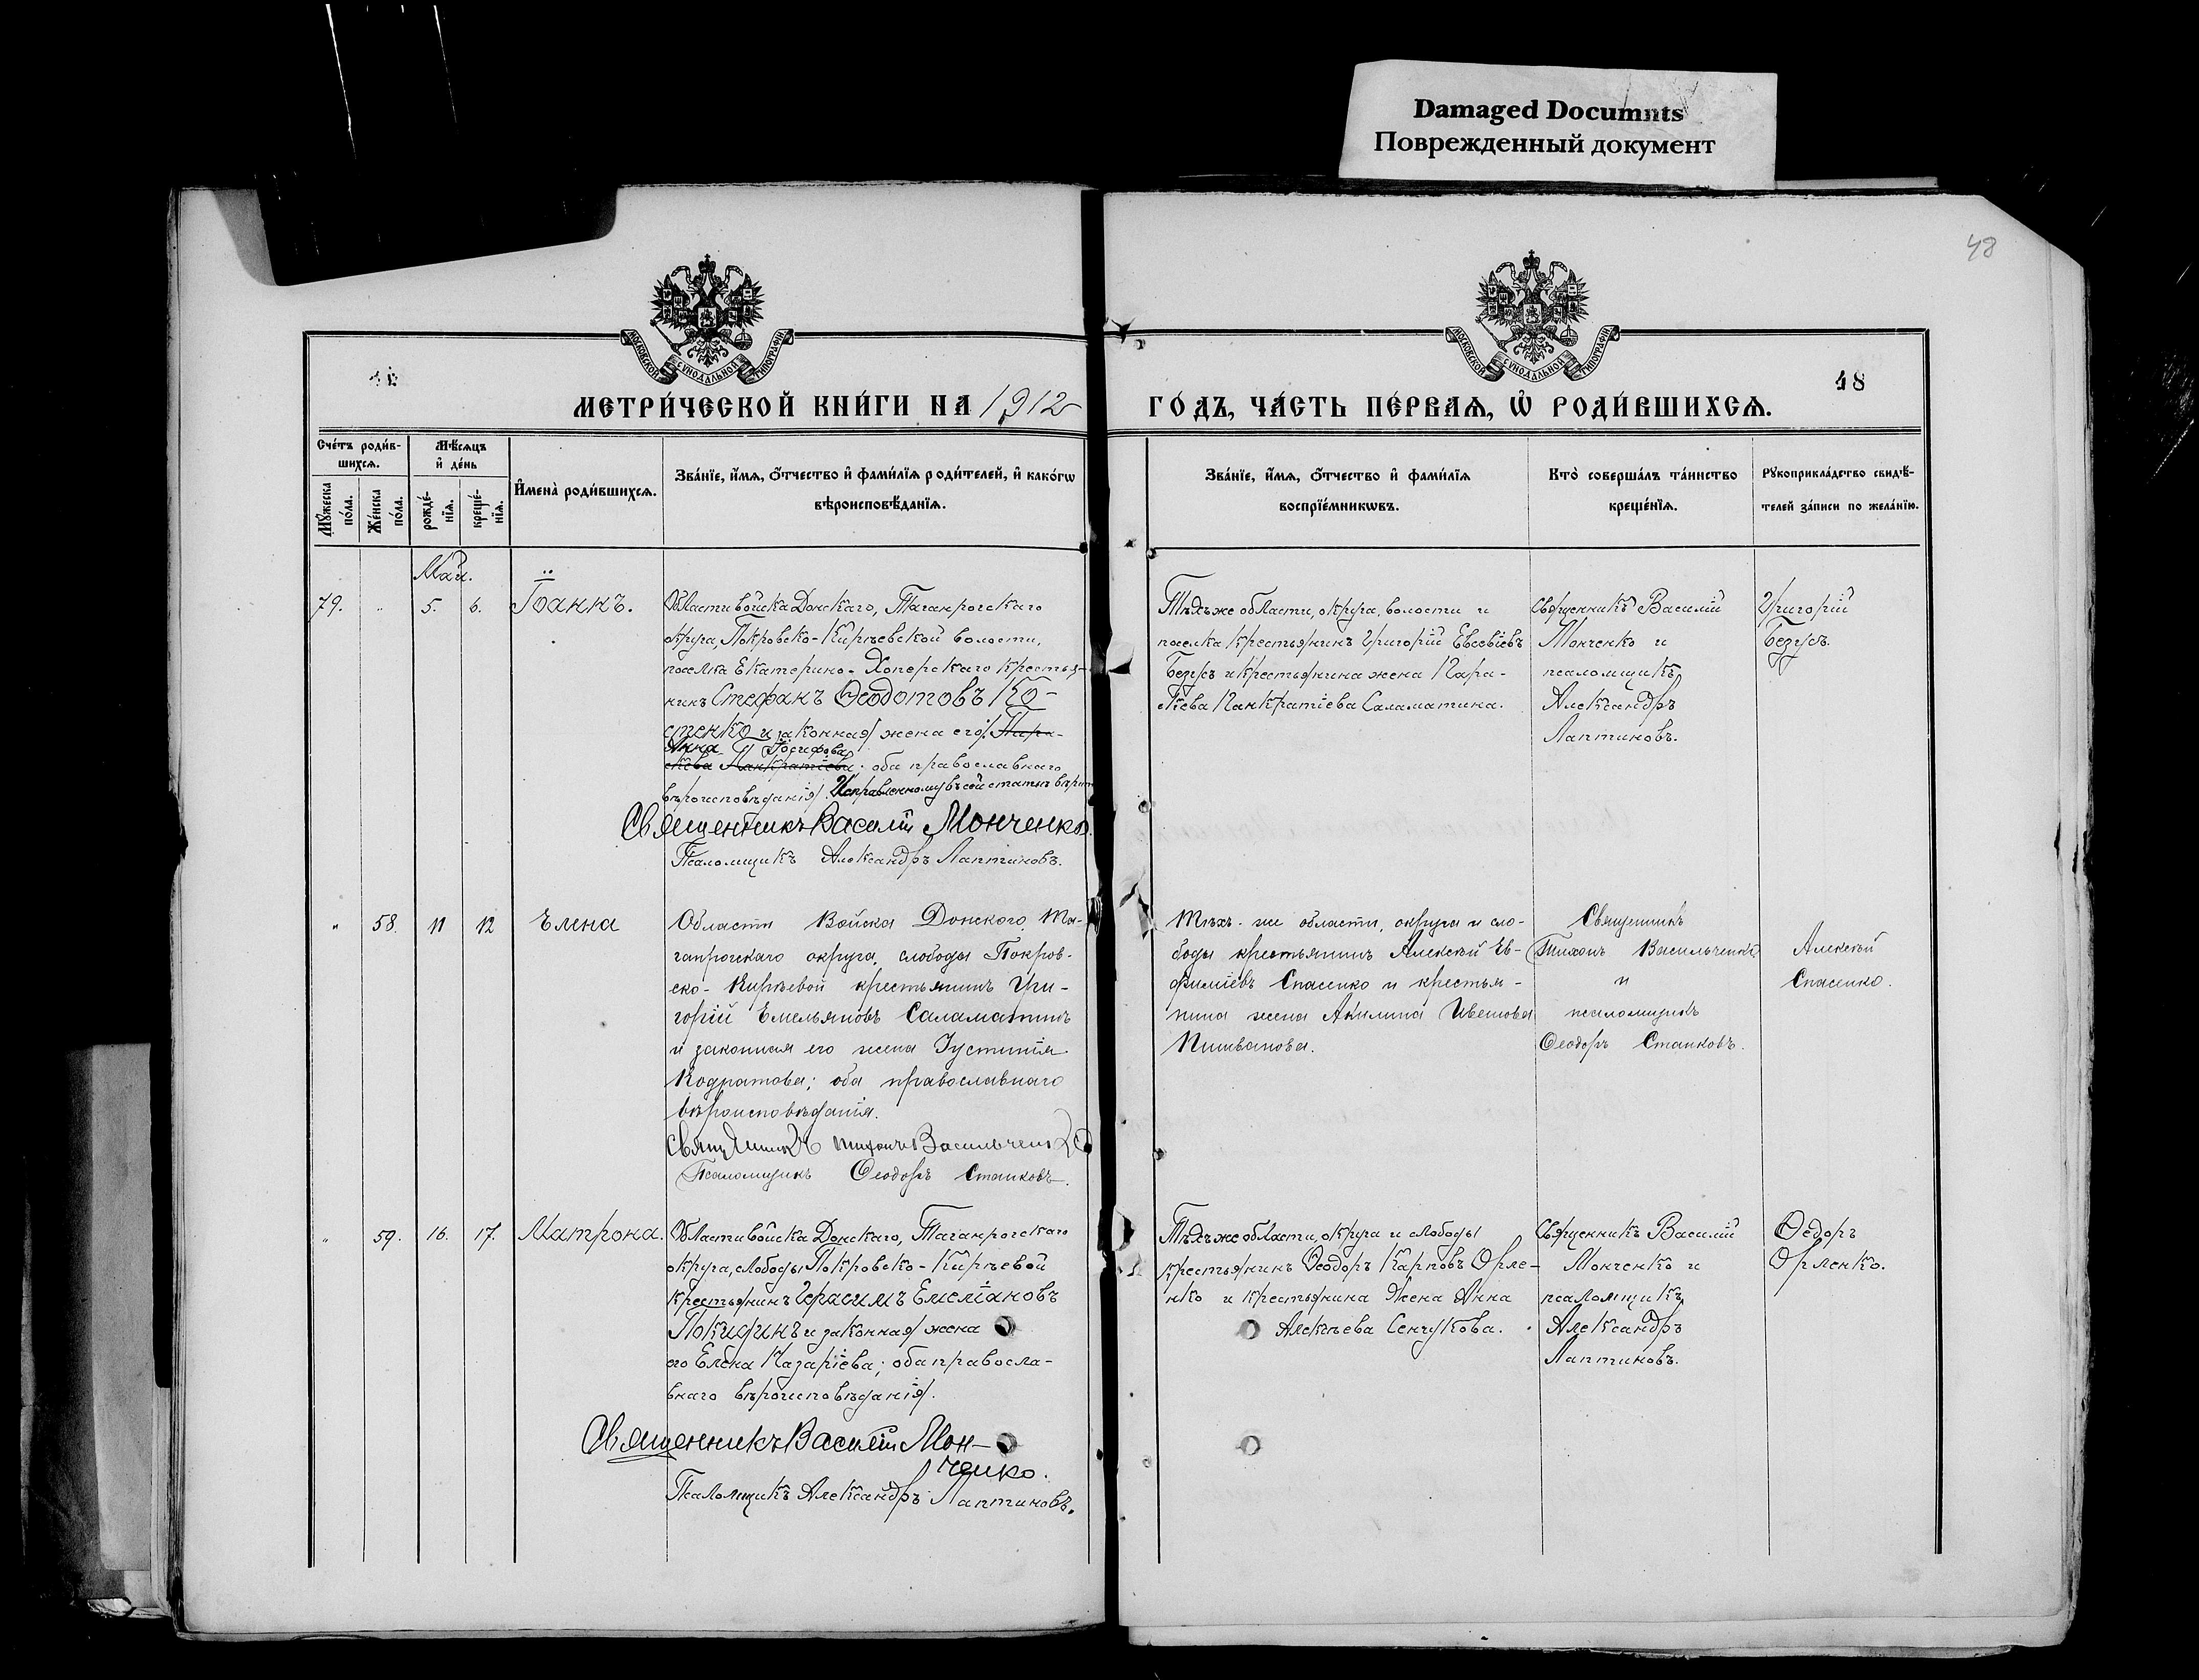 Damaged Documnts
Поврежденный документ
48
МОСКОВСКОЙ СУНОДАЛЬНОЙ ТИПОГРАФІИ
МОСКОВСКОЙ СУНОДАЛЬНОЙ ТИПОГРАФІИ
48
МЕТРИ́ЧЕСКОЙ КНИ́ГИ НА 1912 ГО́ДЪ, ЧА́СТЬ ПЕ́РВАЯ, Ѡ҆ РОДИ́ВШИХСЯ.
Сче́тъ роди́в-
шихся.
Мꙋ́жеска
по́ла.
Же́нска
по́ла.
Мѣ́сяцъ
и҆ де́нь
рожде́-
нїя.
креще́-
нїя.
И҆мена̀ роди́вшихся.
Зва́нїе, и҆́мя, ѻ҆́тчество и҆ фами́лїя роди́телей, и҆ како́гѡ
вѣроисповѣ́данїя.
Зва́нїе, и҆́мя, ѻ҆́тчество и҆ фами́лїя
воспрїе́мникѡвъ.
Кто̀ соверша́лъ та́инство
креще́нїя.
Рꙋкоприкла́дство свидѣ́-
телей за́писи по жела́нїю.
Май.
79. „ 5. 6. Іоаннъ.
Области войска Донскаго, Таганрогскаго
округа, Покровско-Кирѣевской волости,
поселка Екатерино-Хоперскаго крестья-
нинъ Стефанъ Ѳеодотовъ Ко-
стенко и законная жена его: Пара-
Анна Іосифова
скева Панкратіева; оба православнаго
вѣроисповѣданія. Исправленному въ сей статьѣ вѣрить
Священникъ Василій Монченко.
Псаломщикъ Александръ Лаптиковъ.
Тѣхъ же области, округа, волости и
поселка крестьянинъ Григорій Евсевіевъ
Безусъ и крестьянина жена Пара-
скева Панкратіева Саламатина.
Священникъ Василій
Монченко и
псаломщикъ
Александръ
Лаптиковъ.
Григорій
Безусъ.
„ 58. 11 12 Елена
Области Войска Донского, Та-
ганрогскаго округа, слободы Покров-
ско-Кирѣевой крестьянинъ Гри-
горій Емельяновъ Саламатинъ
и законная его жена Іустинія
Кодратова; оба православнаго
вѣроисповѣданія.
Священникъ Тихонъ Васильченко
Псаломщикъ Ѳеодоръ Станковъ.
Тѣхъ-же области, округа и сло-
боды крестьянинъ Алексѣй Ев-
фиміевъ Спасенко и крестья-
нина жена Акилина Ивановна
Пишванова.
Священникъ
Тихонъ Васильченко
и
псаломщикъ
Ѳеодоръ Станковъ.
Алексѣй
Спасенко.
„ 59. 16. 17. Матрона.
Области войска Донскаго, Таганрогскаго
округа, слободы Покровско-Кирѣевой
крестьянинъ Герасимъ Емеліановъ
Покидинъ и законная жена
его Елена Назаріева; оба правосла-
внаго вѣроисповѣданія.
Священникъ Василій Мон-
ченко.
Псаломщикъ Александръ Лаптиковъ.
Тѣхъ же области, округа и слободы
крестьянинъ Ѳеодоръ Карповъ Орле-
нко и крестьянина жена Анна
Алексѣева Сенчукова.
Священникъ Василій
Монченко и
псаломщикъ
Александръ
Лаптиковъ.
Ѳедоръ
Орленко.